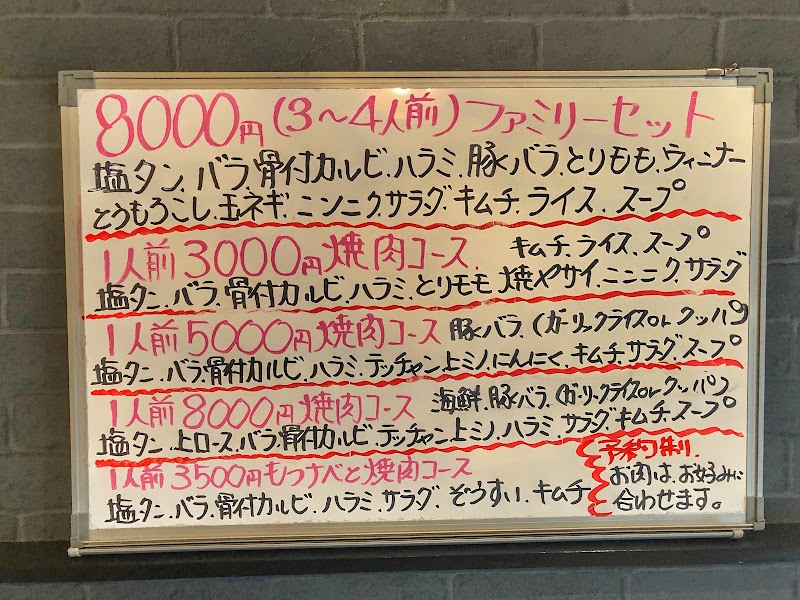 8000円(3〜4人前)ファミリーセット
塩タン.バラ.骨付カルビ.ハラミ.豚バラ.とりもも.ウィンナー
とうもろこし.玉ネギ.ニンニク.サラダ.キムチ.ライス.スープ
1人前3000円焼肉コース. キムチ.ライス.スープ
塩タン.バラ.骨付カルビ.ハラミ.とりモモ.焼ヤサイ.ニンニク.サラダ
1人前5000円焼肉コース 豚バラ.(ガーリックライスorクッパ)
塩タン.バラ.骨付カルビ.ハラミ.テッチャン.上ミノ.にんにく.キムチ.サラダ.スープ
1人前8000円焼肉コース 海鮮.豚バラ.(ガーリックライスorクッパ)
塩タン.上ロース.バラ.骨付カルビ.テッチャン.上ミノ.ハラミ.サラダ.キムチ.スープ
1人前3500円もつなべと焼肉コース
塩タン.バラ.骨付カルビ.ハラミ.サラダ.ぞうすい.キムチ
予約制.
お肉は、お好みに
合わせます。